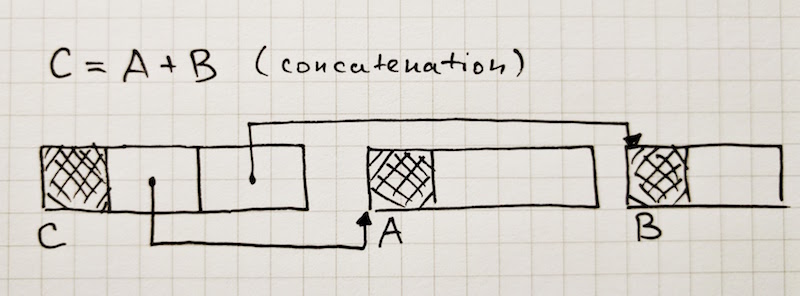 C = A + B (concatenation)
C A B